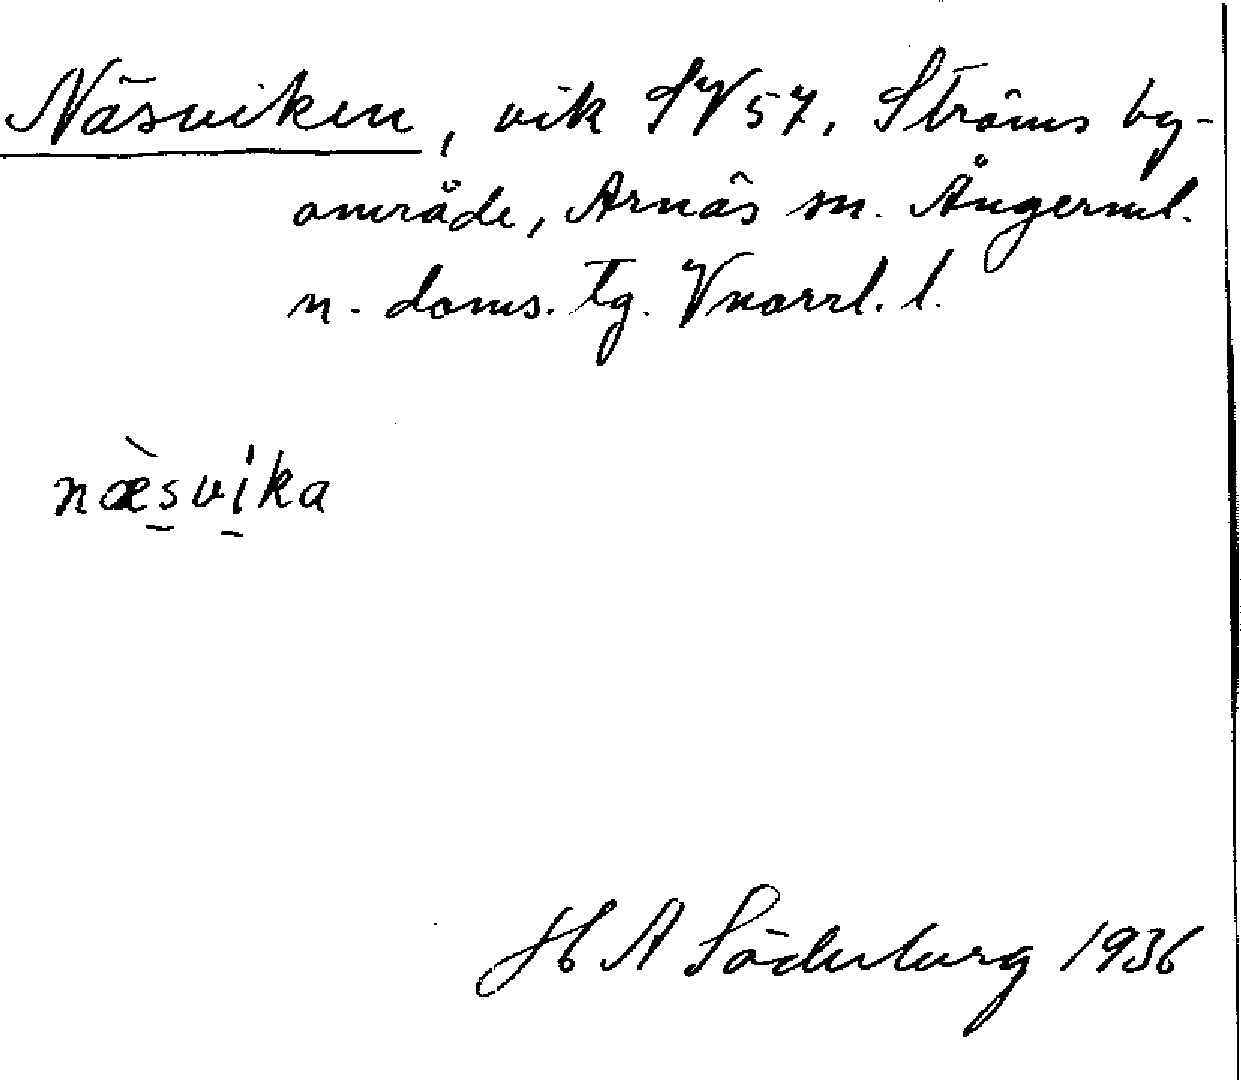 Näsviken, vik SV 57, Ströms by-
område, Arnäs sn. Ångerml.
n. doms. tg. Vnorrl. l.
næ̀s̱vi̱ka
H A Söderberg 1936